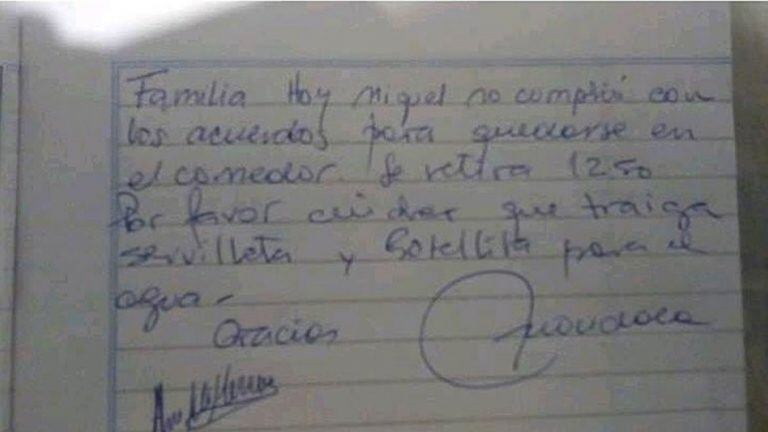 Familia Hoy Miguel no cumplió con
los acuerdos para quedarse en
el comedor. Se retira 12 50
Por favor cuidar que traiga
servilleta y botellita para el
agua -
Gracias